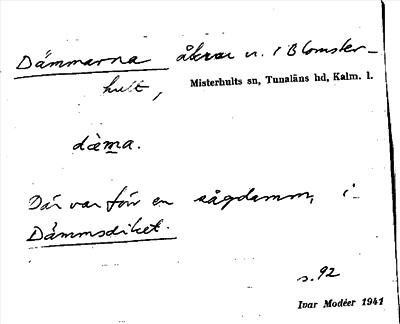 Dämmarna åkrar u. i Blomster-
hult,
Misterhults sn, Tunaläns hd, Kalm. l.
dæ̀ma.
Där var förr en sågdamm, i
Dämmsdiket.
s. 92
Ivar Modéer 1941